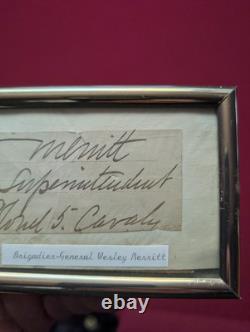 Merritt
Superintendent
Colonel 5. Cavaly
Brigadier-General Wesley Merritt